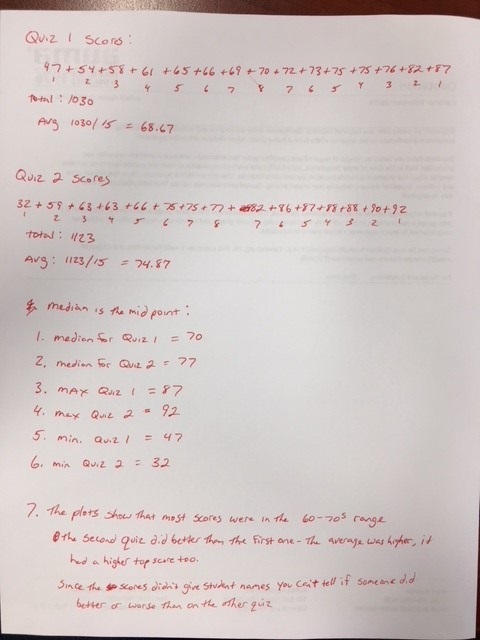 Quiz 1 Scores:
47 + 54 + 58 + 61 + 65 + 66 + 69 + 70 + 72 + 73 + 75 + 75 + 76 + 82 + 87
1 2 3 4 5 6 7 8 7 6 5 4 3 2 1
total: 1030
Avg 1030/15 = 68.67
Quiz 2 Scores
32 + 59 + 63 + 63 + 66 + 75 + 75 + 77 + 82 + 86 + 87 + 88 + 88 + 90 + 92
1 2 3 4 5 6 7 8 7 6 5 4 3 2 1
total: 1123
Avg: 1123/15 = 74.87
median is the midpoint:
1. median for Quiz 1 = 70
2. median for Quiz 2 = 77
3. max Quiz 1 = 87
4. max Quiz 2 = 92
5. min. Quiz 1 = 47
6. min Quiz 2 = 32
7. The plots show that most scores were in the 60-70s range
the second quiz did better than the first one - the average was higher, it
had a higher top score too.
Since the scores didn't give student names you can't tell if someone did
better or worse than on the other quiz